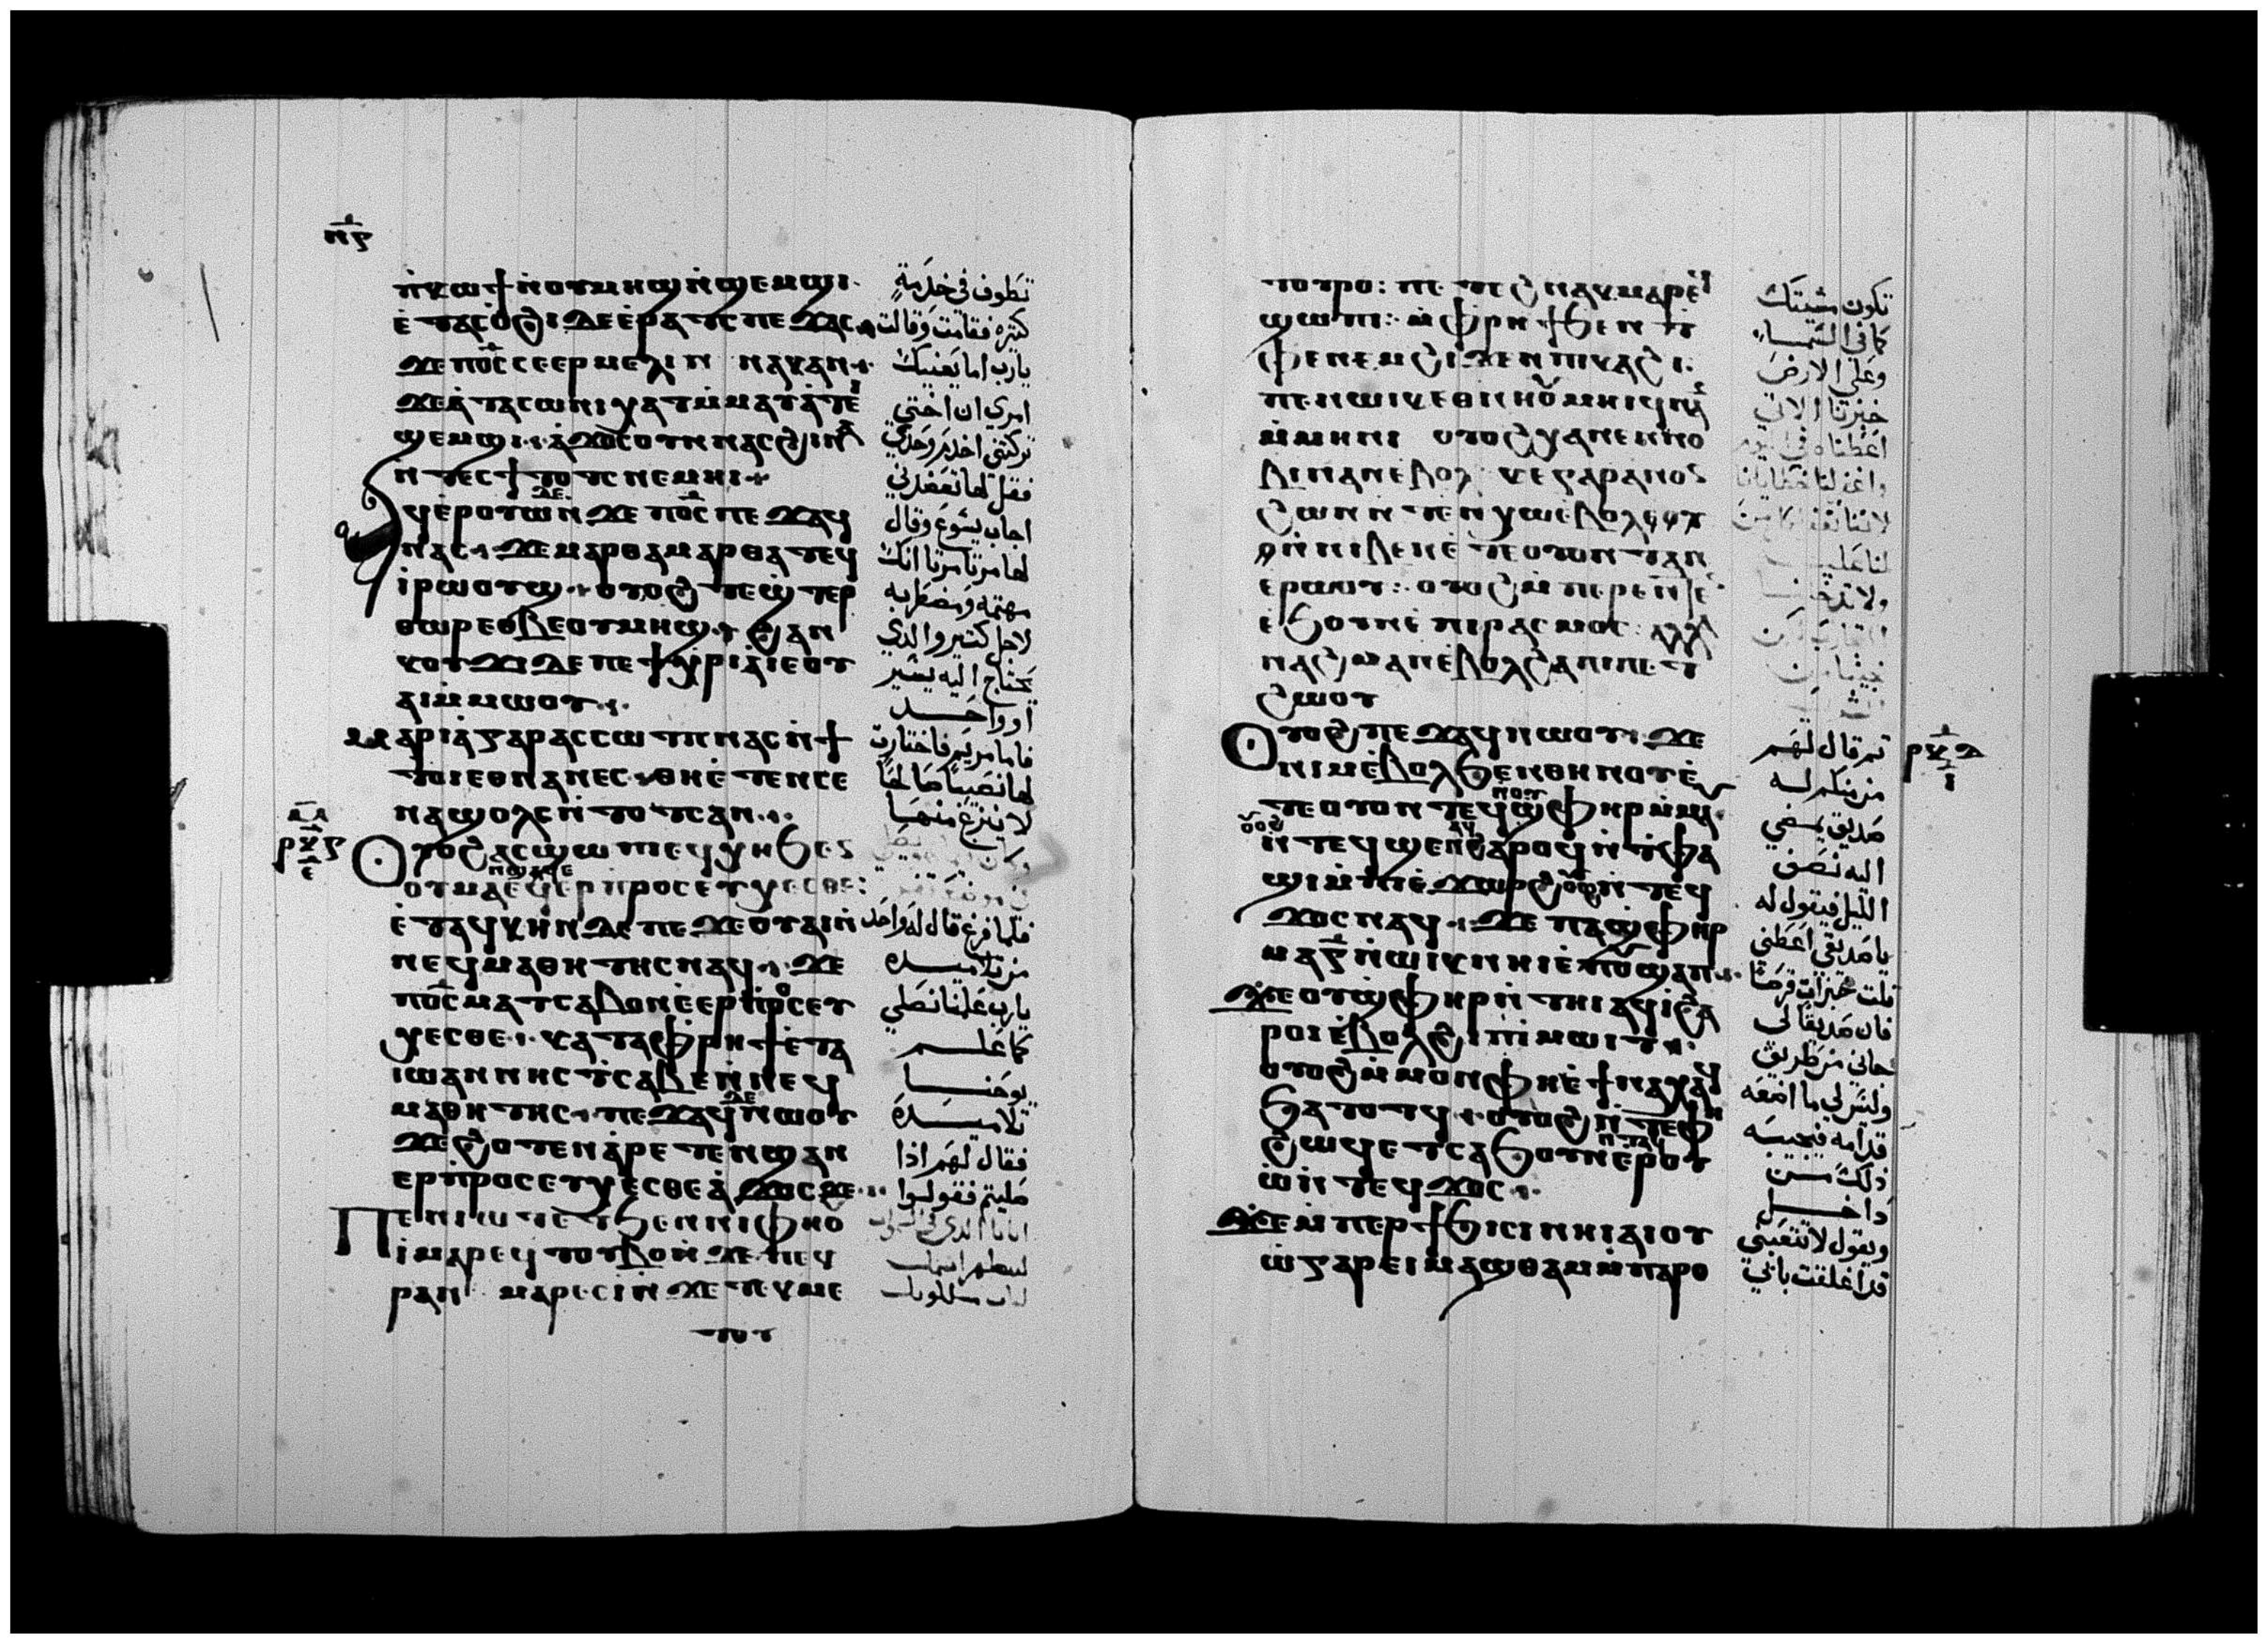 ⲛ̅ⲍ
ⲛ̀ⲕⲱϯ ⲛⲟⲩⲙⲏϣ ⲛ̀ϣⲉⲙϣⲓ·
ⲉ̀ⲧⲁⲥⲟ̀ϩⲓ ⲇⲉ ⲉ̀ⲣⲁⲧⲥ ⲡⲉϫⲁⲥ
ϫⲉ ⲡⲟ̅ⲥ ⲥⲉⲉⲣⲙⲉⲗⲓⲛ ⲛⲁⲕ ⲁⲛ·
ϫⲉ ⲁ̀ⲧⲁⲥⲱⲛⲓ ⲭⲁⲧ ⲙ̀ⲙⲁⲩⲁ̀ⲧ ⲉ
ϣⲉⲙϣⲓ· ⲁ̀ϫⲟⲥ ⲟⲩⲛ ⲛⲁⲥ ϩⲓⲛⲁ
ⲛⲧⲉⲥϯⲧⲟⲧⲥ ⲛⲉⲙⲏⲓ·
ⲁϥⲉ̀ⲣⲟⲩⲱ ⲇⲉ ⲛ̀ϫⲉ ⲡⲟ̅ⲥ ⲡⲉϫⲁϥ
ⲛⲁⲥ· ϫⲉ ⲙⲁⲣⲑⲁ ⲙⲁⲣⲑⲁ ⲧⲉϥ
ⲓ̀ⲣⲱⲟⲩϣ· ⲟⲩⲟϩ ⲧⲉϣⲧⲉⲣ
ⲑⲱⲣ ⲉⲑⲃⲉ ⲟⲩⲙⲏϣ· ϩⲁⲛ
ⲕⲟⲩϫⲓ ⲇⲉ ⲡⲉⲧⲭⲣⲓⲁ ⲓⲉ ⲟⲩ
ⲁⲓ ⲙ̀ⲙⲱⲟⲩ·
ⲙⲁⲣⲓⲁ ⲅⲁⲣ ⲁⲥⲥⲱⲧⲡ ⲛⲁⲥ ⲛ̀ϯ
ⲧⲟⲓ ⲉⲑⲛⲁⲛⲉⲥ· ⲑⲏⲉ̀ⲧⲉⲛⲥⲉ
ⲛⲁϣⲟⲗⲥ ⲛ̀ⲧⲟⲧⲥ ⲁⲛ·
ⲣⲕⲍ
ⲉ
ⲟⲩⲟϩ ⲁⲥϣⲱⲡⲓ ⲉϥⲭⲏ ϧⲉⲛ
ⲟⲩⲙⲁ ⲉϥⲉⲣⲡⲣⲟⲥⲉⲩⲭⲉⲥⲑⲉ:
ⲉ̀ⲧⲁϥⲕⲏⲛ ⲇⲉ ⲡⲉϫⲉ ⲟⲩⲁⲓ ⲛ̀
ⲛⲉϥⲙⲁⲑⲏⲧⲏⲥ ⲛⲁϥ· ϫⲉ
ⲡⲟ̅ⲥ ⲙⲁⲧⲥⲁⲃⲟⲛ ⲉ̀ⲉⲣⲡⲣⲟⲥⲉⲩ
ⲭⲉⲥⲑⲉ· ⲕⲁⲧⲁ ⲫⲣⲏϯ ⲉ̀ⲧⲁ
ⲓⲱⲁⲛⲛⲏⲥ ⲧⲥⲁⲃⲉ ⲛ̀ⲛⲉϥ
ⲙⲁⲑⲏⲧⲏⲥ· ⲡⲉϫⲁϥ ⲇⲉ ⲛⲱⲟⲩ
ϫⲉ ϩⲟⲧⲉⲛ ⲁ̀ⲣⲉⲧⲉⲛϣⲁⲛ
ⲉⲣⲡⲣⲟⲥⲉⲩⲭⲉⲥⲑⲉ ⲁ̀ϫⲟⲥ ϫⲉ·
ⲡⲉⲛⲓⲱⲧ ⲉⲧϧⲉⲛ ⲛⲓⲫⲏⲟⲩ
ⲓ̀ ⲙⲁⲣⲉϥⲧⲟⲩⲃⲟ ⲛ̀ϫⲉ ⲡⲉⲕ
ⲣⲁⲛ ⲙⲁⲣⲉⲥⲓ̀ ⲛ̀ϫⲉ ⲧⲉⲕⲙⲉ
ⲧⲟⲩ
تطوف في خدمة
كثيره فقامت وقالت
يارب اما يعنيك
امري ان اختي
تركتني اخدم وحدي
فقل لها تعضدني
اجاب يسوع وقال
لها مرتا مرتا انك
مهتمه ومضطربه
لاجل كثير والذي
يحتاج اليه يسير
او واحد
فاما مريم فاختارت
لها نصيبا صالحا
لا ينزع منها
فلما فرغ قال له واحد
من تلاميده
يارب علمنا نصلي
كما علم
يوحنا
تلاميده
فقال لهم اذا
صليتم فقولوا
ⲧⲟⲩⲣⲟ: ⲡⲉⲧⲉϩⲛⲁⲕ ⲙⲁⲣⲉϥ
ϣⲱⲡⲓ: ⲙ̀ⲫⲣⲏϯ ϧⲉⲛ ⲧ
ⲫⲉ ⲛⲉⲙ ϩⲓϫⲉⲛ ⲡⲓⲕⲁϩⲓ·
ⲡⲉⲛⲱⲓⲕ ⲉⲑⲛⲏⲟⲩ ⲙⲏⲓϥ ⲛⲁⲛ
ⲙ̀ⲙⲏⲛⲓ ⲟⲩⲟϩ ⲭⲁ ⲛⲉⲛⲛⲟ
ⲃⲓ ⲛⲁⲛ ⲉⲃⲟⲗ ⲕⲉ ⲅⲁⲣ ⲁⲛⲟⲛ
ϩⲱⲛ ⲛ̀ⲧⲉⲛⲭⲱ ⲉⲃⲟⲗ
ⲛ̀ⲛⲓⲃⲉⲛ ⲉ̀ⲧⲉ ⲟⲩⲟⲛ ⲧⲁⲛ
ⲉⲣⲱⲟⲩ: ⲟⲩⲟϩ ⲙ̀ⲡⲉⲣⲉⲛⲧⲉⲛ
ⲉ̀ϧⲟⲩⲛ ⲉ̀ⲡⲓⲣⲁⲥⲙⲟⲥ: ⲁⲗⲗⲁ
ⲛⲁϩⲙⲉⲛ ⲉ̀ⲃⲟⲗ ϩⲁ ⲡⲓⲡⲉⲧ
ϩⲱⲟⲩ
ⲣⲕⲇ
ⲓ
ⲟⲩⲟϩ ⲡⲉϫⲁϥ ⲛⲱⲟⲩ· ϫⲉ
ⲛⲓⲙ ⲉ̀ⲃⲟⲗ ϧⲉⲛ ⲑⲏⲛⲟⲩ ⲉ̀
ⲧⲉ ⲟⲩⲟⲛⲧⲉϥ ϣⲫⲏⲣ ⲙ̀ⲙⲁⲩ
ⲟⲩⲟϩ ⲛ̀ⲧⲉϥϣⲉ ⲛⲁϥ ϩⲁⲣⲟϥ ⲛ̀ⲧⲫⲁ
ϣⲓ ⲙ̀ⲡⲓⲉ̀ϫⲱⲣϩ ⲟⲩⲟϩ ⲛ̀ⲧⲉϥ
ϫⲟⲥ ⲛⲁϥ· ϫⲉ ⲡⲁϣⲫⲏⲣ
ⲙⲁ ⲅ̅ ⲛ̀ⲱⲓⲕ ⲛⲏⲓ ⲉ̀ⲡⲟⲩϣⲁⲡ·
ϫⲉ ⲟⲩϣⲫⲏⲣ ⲛ̀ⲧⲏⲓ ⲁϥⲓ̀ ϩⲁ
ⲣⲟⲓ ⲉ̀ⲃⲟⲗ ϩⲓ ⲡⲓⲙⲱⲓⲧ·
ⲟⲩⲟϩ ⲙ̀ⲙⲟⲛ ⲫⲏⲉ̀ϯⲛⲁⲭⲁϥ
ϧⲁⲧⲟⲧϥ· ⲟⲩⲟϩ ⲛ̀ⲧⲉ ⲫⲏ
ϩⲱϥ ⲉⲧⲥⲁϧⲟⲩⲛ ⲉⲣⲟⲩ
ⲱ̀ ⲛ̀ⲧⲉϥϫⲟⲥ·
ϫⲉ ⲙ̀ⲡⲉⲣϯϧⲓⲥⲓ ⲛⲏⲓ ⲁⲓⲟⲩ
ⲱ̀ ⲅⲁⲣ ⲉⲓⲙⲁϣⲑⲁⲙ ⲙ̀ⲡⲁⲣⲟ
تكون مشيتك
كما في السماء
وعلى الارض
خبزنا الاتي
ثم قال لهم
من منكم له
صديق يمضي
اليه نصف
الليل فيقول له
يا صديقي اعطني
ثلث خبزات قرضا
فان صديقا لي
جاني من طريق
وليس لي ما اضعه
قدامه فيجيبه
ذلك من
داخل
ويقول لا تتعبني
قد اغلقت بابي